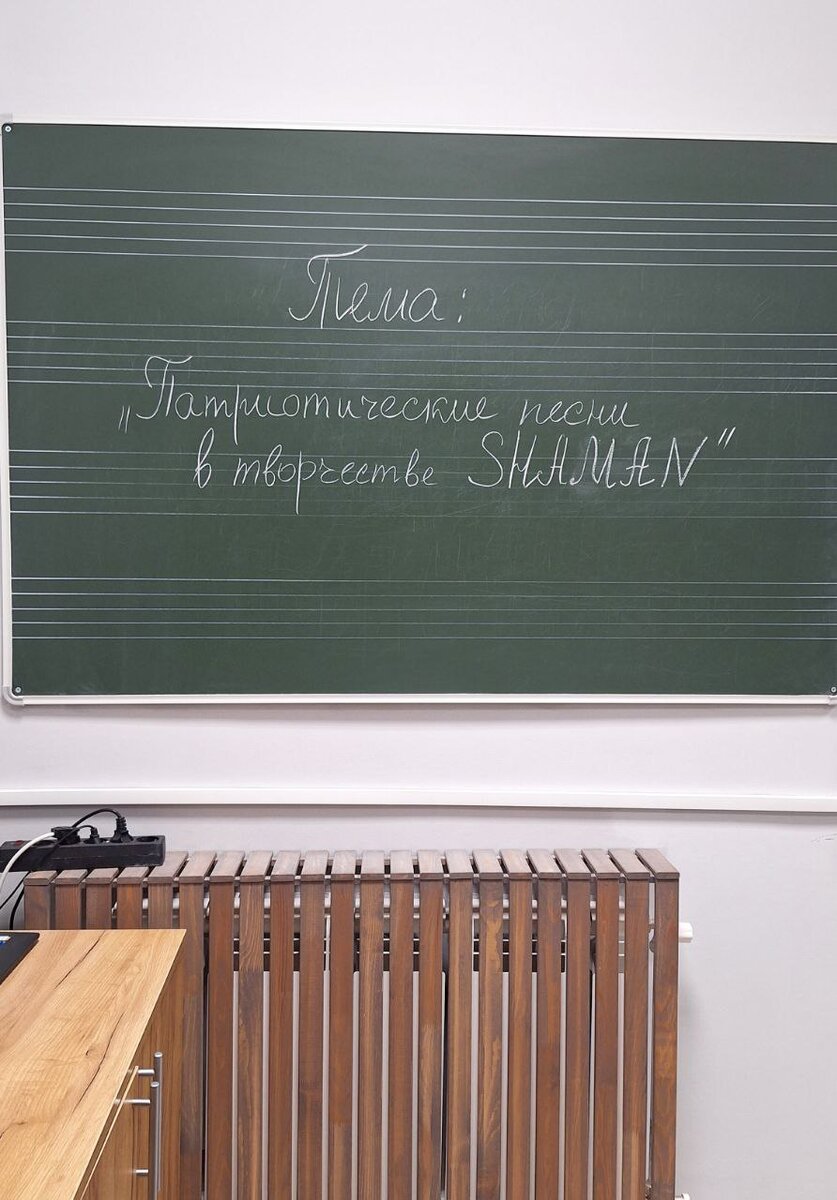 Тема:
„Патриотические песни
в творчестве SHAMAN”